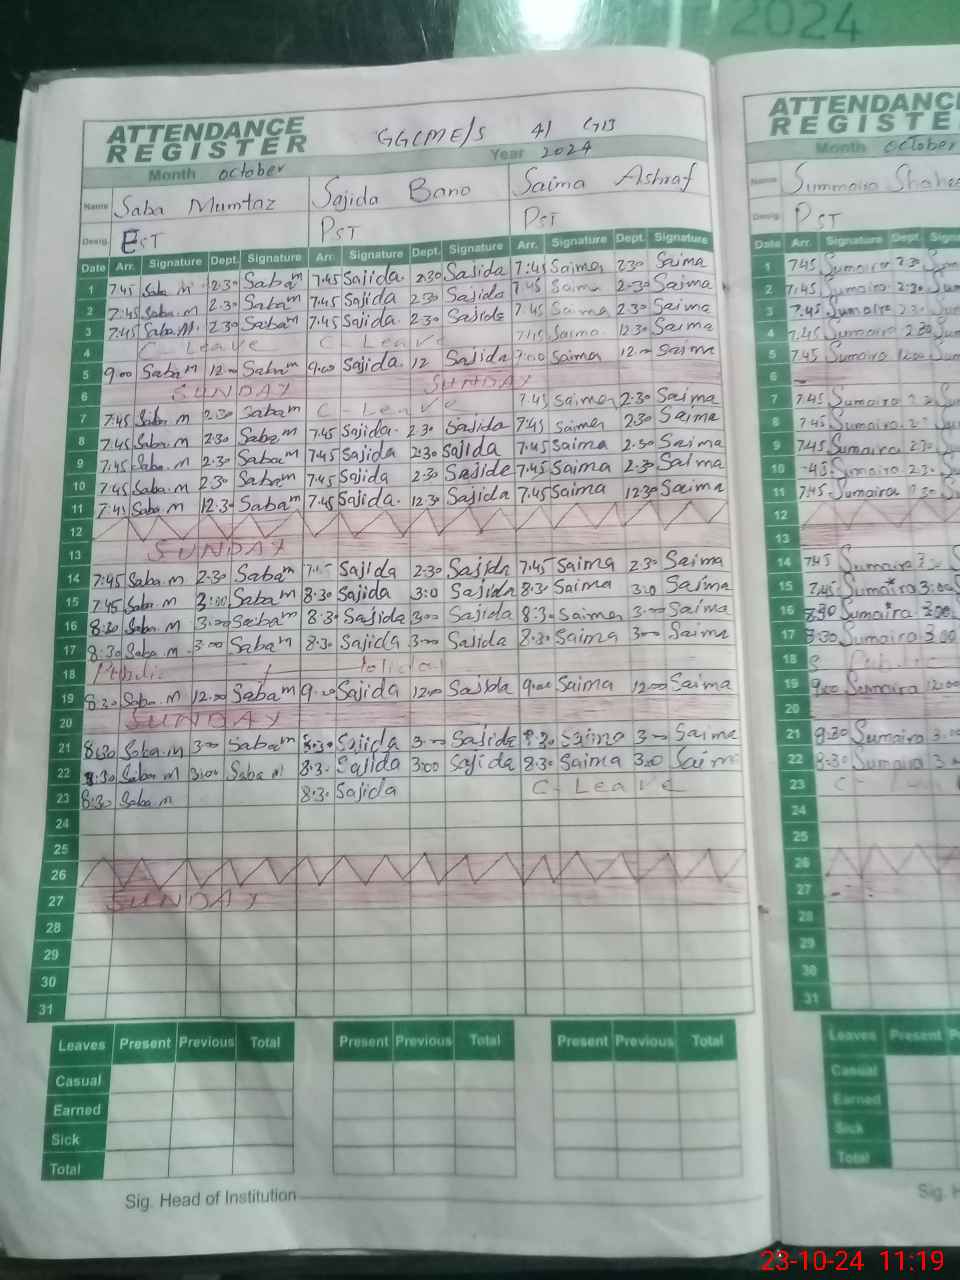 2024
ATTENDANCE REGISTER GGCME/S 41 GB
Month October Year 2024
Name Saba Mumtaz Sajida Bano Saima Ashraf
Desig. EST PST PST
Date Arr. Signature Dept. Signature Arr. Signature Dept. Signature Arr. Signature Dept. Signature
1 7:45 Saba M 2:30 Saba m 7:45 Sajida 2:30 Sajida 7:45 Saima 2:30 Saima
2 7:45 Saba.m 2:30 Saba m 7:45 Sajida 2:30 Sajida 7:45 Saima 2:30 Saima
3 7:45 Saba.M. 2:30 Saba m 7:45 Sajida. 2:30 Sajida 7:45 Saima 2:30 Saima
4 C - Leave C - Leave 7:45 Saima 12:30 Saima
5 9:00 Saba m 12:00 Saba m 9:00 Sajida. 12 Sajida Saima 12:00 Saima
6 SUNDAY SUNDAY
7 7:45 Saba.m 2:30 Saba m C - Leave 7:45 Saima 2:30 Saima
8 7:45 Saba.m 2:30 Saba m 7:45 Sajida. 2:30 Sajida 7:45 Saima 2:30 Saima
9 7:45 Saba.m 2:30 Saba m 7:45 Sajida 2:30 Sajida 7:45 Saima 2:30 Saima
10 7:45 Saba.m 2:30 Saba m 7:45 Sajida 2:30 Sajida 7:45 Saima 2:30 Saima
11 7:45 Saba.m 12:30 Saba m 7:45 Sajida. 12:30 Sajida 7:45 Saima 12:30 Saima
12
13 SUNDAY
14 7:45 Saba.m 2:30 Saba m Sajida 2:30 Sajida 7:45 Saima 2:30 Saima
15 7:45 Saba.m 3:00 Saba m 8:30 Sajida 3:0 Sajida 8:30 Saima 3:0 Saima
16 8:30 Saba.m 3:00 Saba m 8:30 Sajida 3:00 Sajida 8:30 Saima 3:00 Saima
17 8:30 Saba.m 3:00 Saba m 8:30 Sajida 3:00 Sajida 8:30 Saima 3:00 Saima
18 Public holiday
19 8:30 Saba.m 12:00 Saba m 9:00 Sajida 12:00 Sajida 9:00 Saima 12:00 Saima
20 SUNDAY
21 8:30 Saba.m 3:00 Saba m 8:30 Sajida 3:00 Sajida 8:30 Saima 3:00 Saima
22 8:30 Saba m 3:00 Saba m 8:30 Sajida 3:00 Sajida 8:30 Saima 3:00 Saima
23 8:30 Saba m 8:30 Sajida C - Leave
24
25
26
27 SUNDAY
28
29
30
31
Leaves Present Previous Total Present Previous Total Present Previous Total
Casual
Earned
Sick
Total
Sig. Head of Institution
ATTENDANC
REGISTE
Month October
Name Summaira
Desig. PST
Date Arr. Signature Dept.
1 7:45 Sumaira
2 7:45 Sumaira 2:30
3 7:45 Sumaira
4 7:45 Sumaira 2:30
5 7:45 Sumaira
6
7 7:45 Sumaira
8 7:45 Sumaira
9 7:45 Sumaira 2:30
10 Sumaira
11 7:45 Sumaira
12
13
14 7:45 Sumaira
15 7:45 Sumaira 3:00
16 8:30 Sumaira 3:00
17 8:30 Sumaira 3:00
18 Public
19 9:00 Sumaira 12:00
20
21 8:30 Sumaira 3:00
22 8:30 Sumaira
23 C -
24
25
26
27
28
29
30
31
Leaves Present
Casual
Earned
Sick
Total
Sig. H
23-10-24 11:19